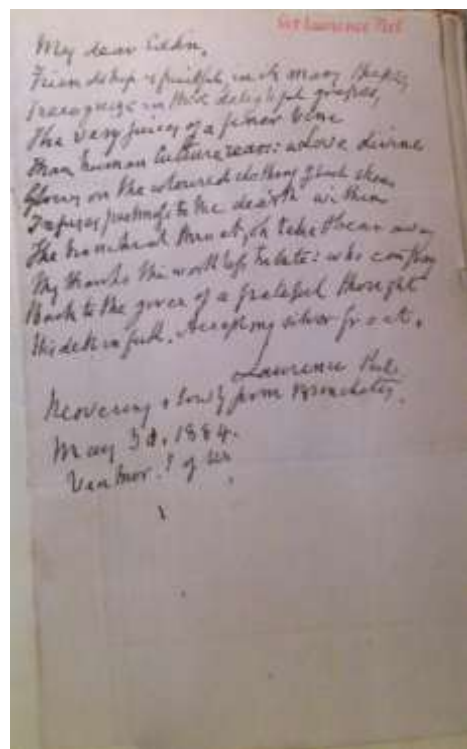 Sir Lawrence Peel
My dear Eddn,
Friendship is fruitful, in its many shapes,
I recognize in these delightful grapes,
The very juices of a finer vine
Than human culture rears: a Love divine
on the coloured clothing
to the death within
The bronchial throat, take these away
My thanks the worthless tribute: who can pay
Back to the giver of a grateful thought
His debt in full. Accept my silver groat.
Lawrence Peel
Recovering slowly from Bronchitis.
May 3d, 1884.
Ventnor. I of W